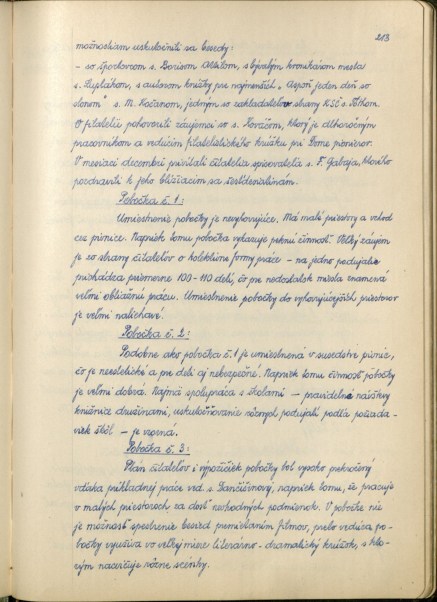 213
možnostiam uskutočnili sa besedy:
- so športovcom s. Borisom , s bývalým kronikárom mesta
s. Luptákom, s autorom knižky pre najmenších „Aspoň jeden deň so
slonom" s. M. Kočanom, jedným zo zakladateľov strany KSČ s. Pethom.
O filatelii pohovorili záujemci so s. Kováčom, ktorý je dlhoročným
pracovníkom a vedúcim filatelistického krúžku pri Dome pionierov.
V mesiaci decembri privítali čitatelia spisovateľa s. F. Gabaja, ktorého
pozdravili k jeho blížiacim sa šesťdesiatinám.
Pobočka č. 1:
Umiestnenie pobočky je nevyhovujúce. Má malé priestory a vchod
cez pivnice. Napriek tomu pobočka vykazuje peknú činnosť. Veľký záujem
je zo strany čitateľov o kolektívne formy práce - na jedno podujatie
prichádza priemerne 100-110 detí, čo pre nedostatok miesta znamená
veľmi obtiažnu prácu. Umiestnenie pobočky do vyhovujúcejších priestorov
je veľmi naliehavé.
Pobočka č. 2:
Podobne ako pobočka č. 1 je umiestnená v susedstve pivníc,
čo je neestetické a pre deti aj nebezpečné. Napriek tomu činnosť pobočky
je veľmi dobrá. Najmä spolupráca s školami - pravidelné návštevy
knižnice družinami, uskutočňovanie rôznych podujatí podľa požiada-
viek škôl - je vzorná.
Pobočka č. 3:
Plán čitateľov i výpožičiek pobočky bol vysoko prekročený
vďaka príkladnej práce ved. s. Jančušinovej, napriek tomu, že pracuje
v malých priestoroch za dosť nevhodných podmienok. V pobočke nie
je možnosť spestrenie besied premietaním filmov, preto vedúca po-
bočky využíva vo veľkej miere literárno-dramatický krúžok, s kto-
rým nacvičuje rôzne scénky.